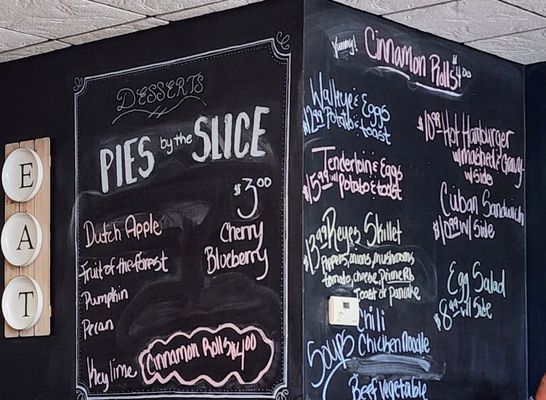 E
A
T
DESSERTS
PIES by the SLICE
$3.00
Dutch Apple
Fruit of the forest
Pumpkin
Pecan
Key lime
Cherry
Blueberry
Cinnamon Rolls $4.00
Yummy!
Cinnamon Rolls $4.00
Walleye & Eggs
Potato & toast
Tenderloin & Eggs
$15.99 w/ Potato & toast
$13.99 Reyes Skillet
Peppers, onions, mushrooms
tomato, cheese, Prime Rib
Toast or pancake
Soup
Chili
Chicken Noodle
Beef Vegetable
Hot Hamburger
w/ mashed & Gravy
w/ Side
Cuban Sandwich
w/ Side
Egg Salad
$8.99 w/ Side